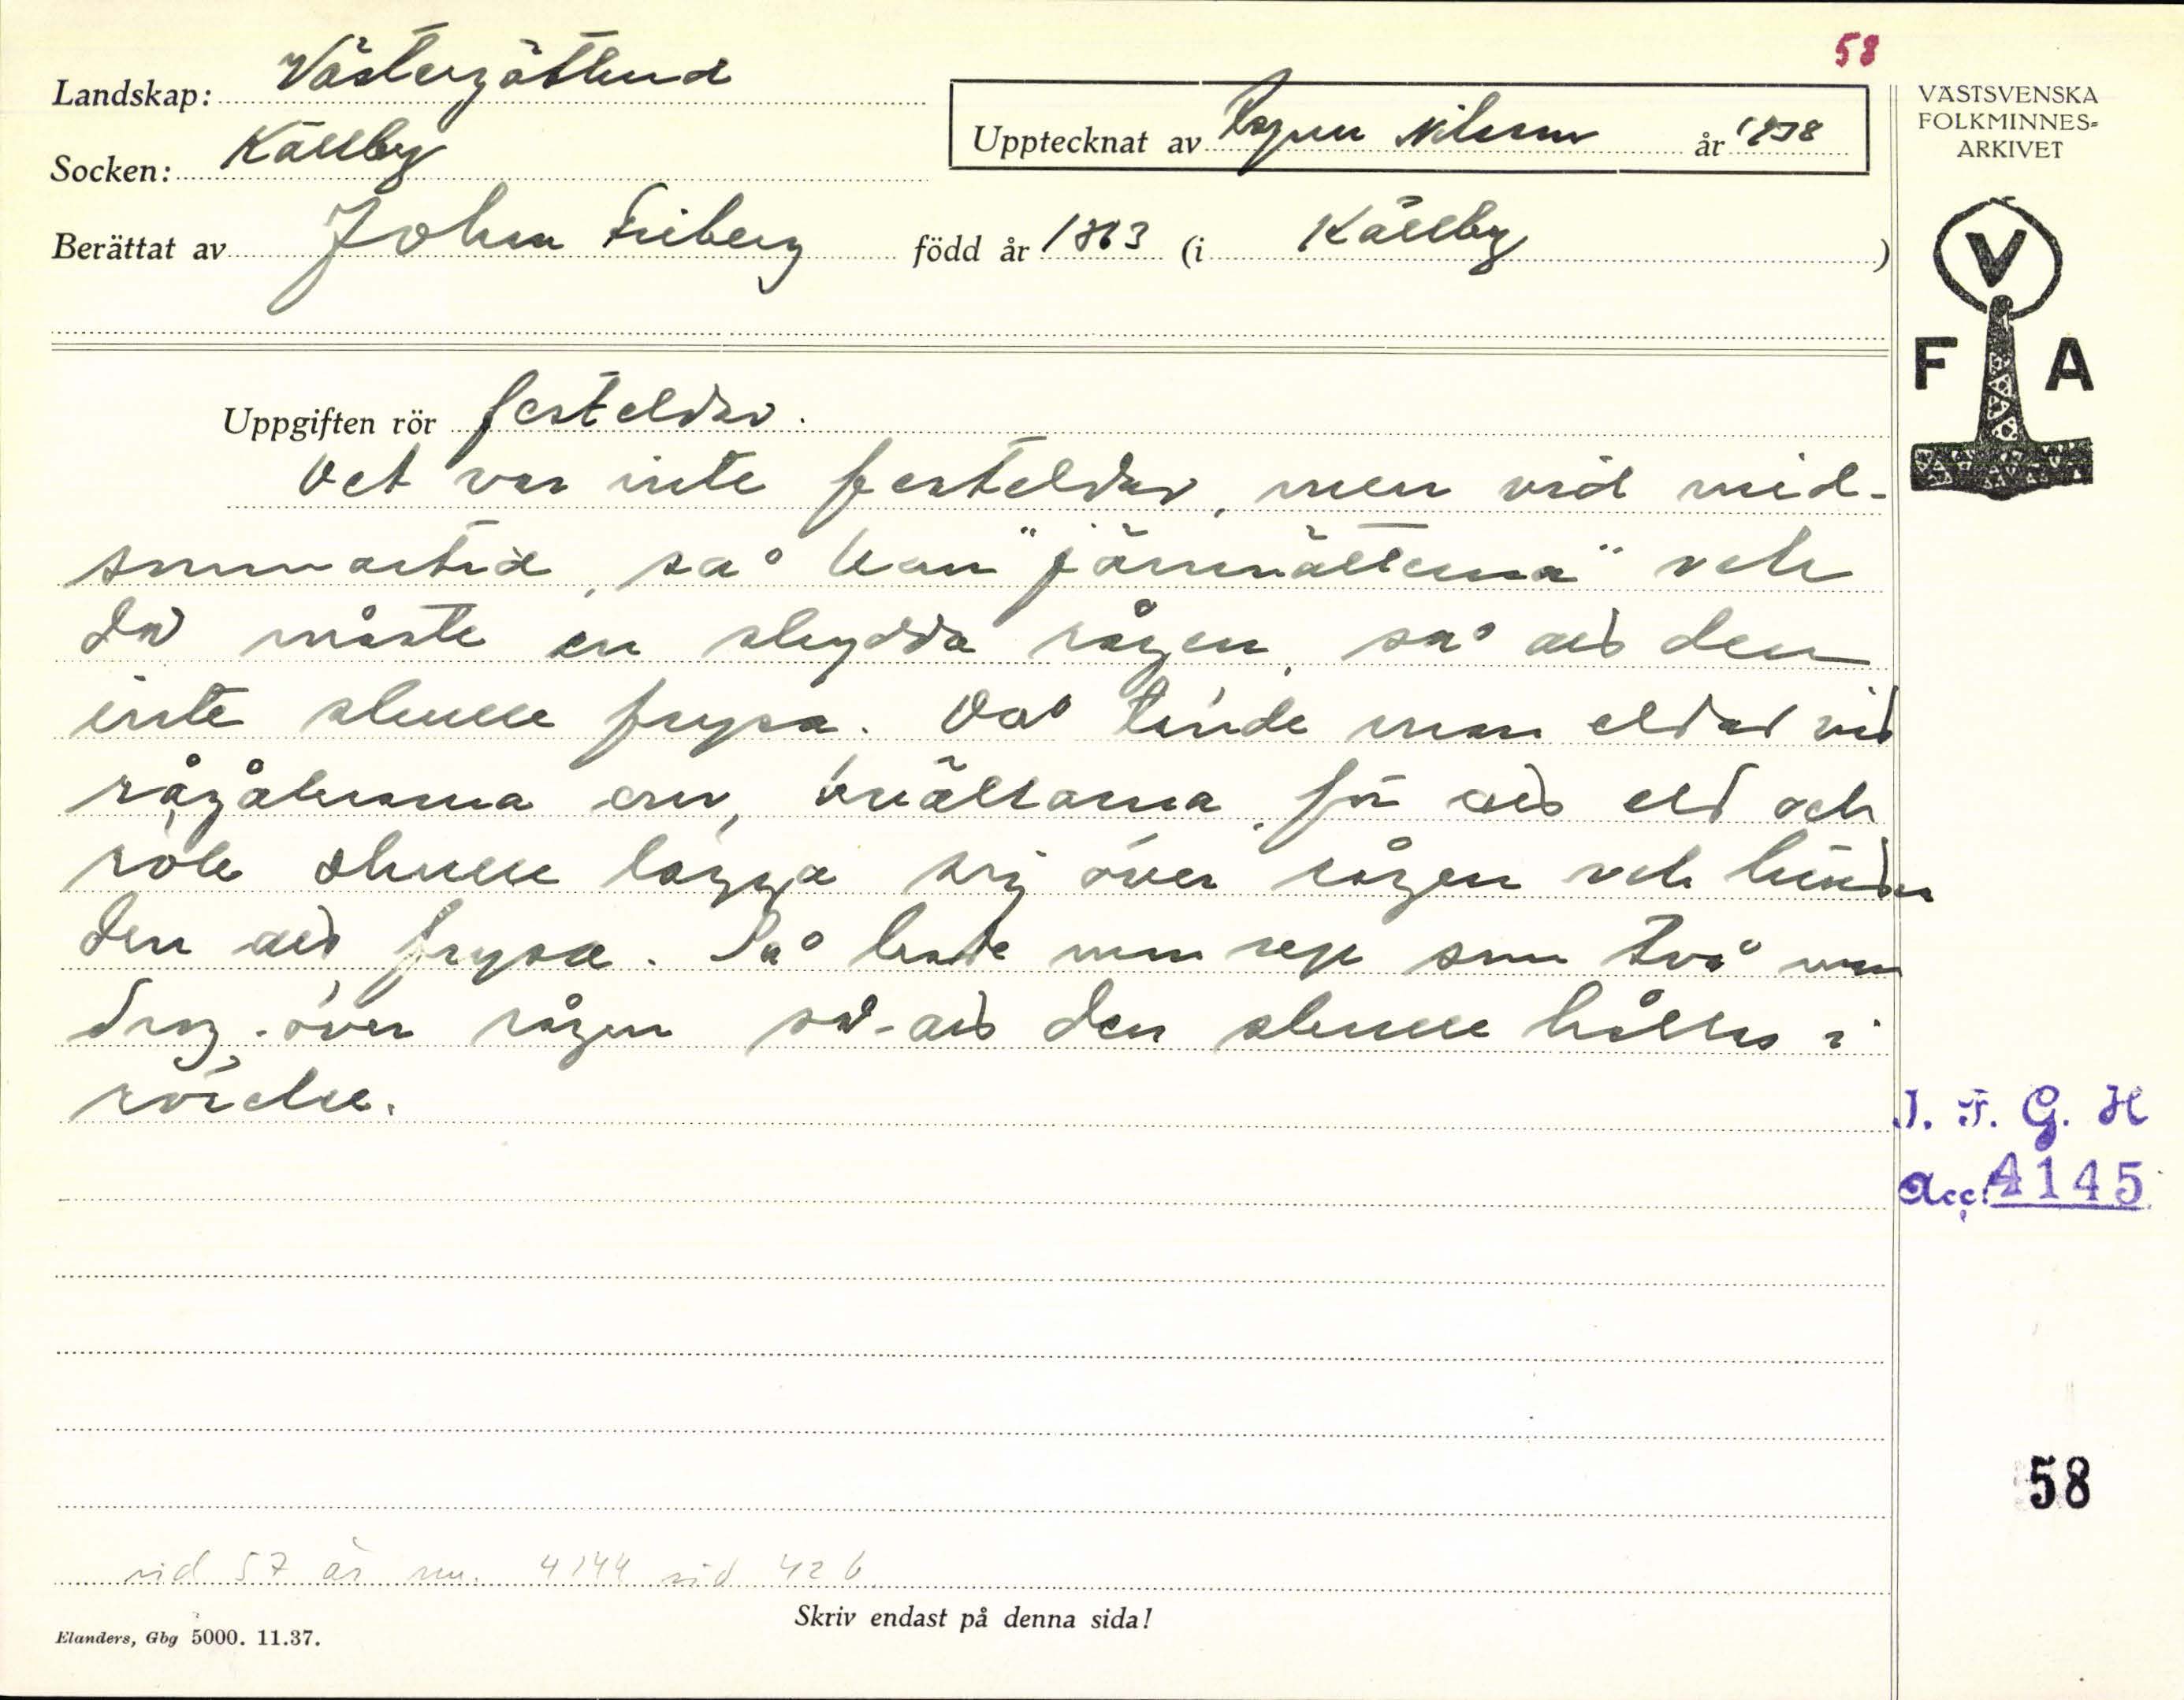 58
Landskap: Västergötland
Upptecknat av Ragnar Nilsson år 1938
VÄSTSVENSKA
FOLKMINNES-
ARKIVET
Socken: Källby
Berättat av Johan Friberg född år 1863 (i Källby)
V
F A
Uppgiften rör festeldar.
Det var inte festeldar, men vid mid-
sommartid, så kom "järnnätterna" och
då måste en skydda rågen, så att den
inte skulle frysa. Då tände man eldar vid
rågåkrarna om kvällarna för att eld och
rök skulle lägga sig över rågen och hindra
den att frysa. Så hade man rep som två man
drog över rågen så att den skulle hållas i
rörelse.
I. F. G. H
Acc. 4145
58
sid 57 är nu. 4144 sid 42 b
Skriv endast på denna sida!
Elanders, Gbg 5000. 11.37.